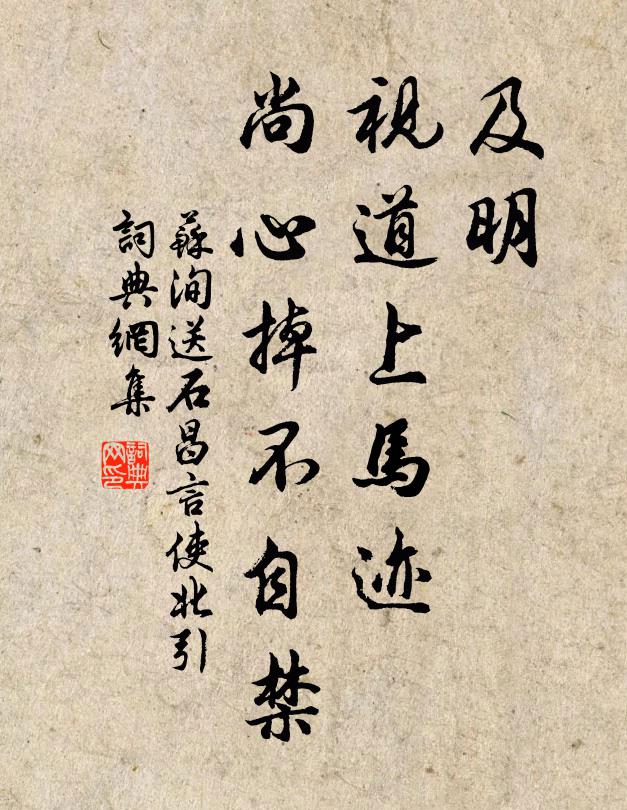 及明
視道上馬迹
尚心掉不自禁
蘇洵送石昌言使北引
詞典網集
詞典网印